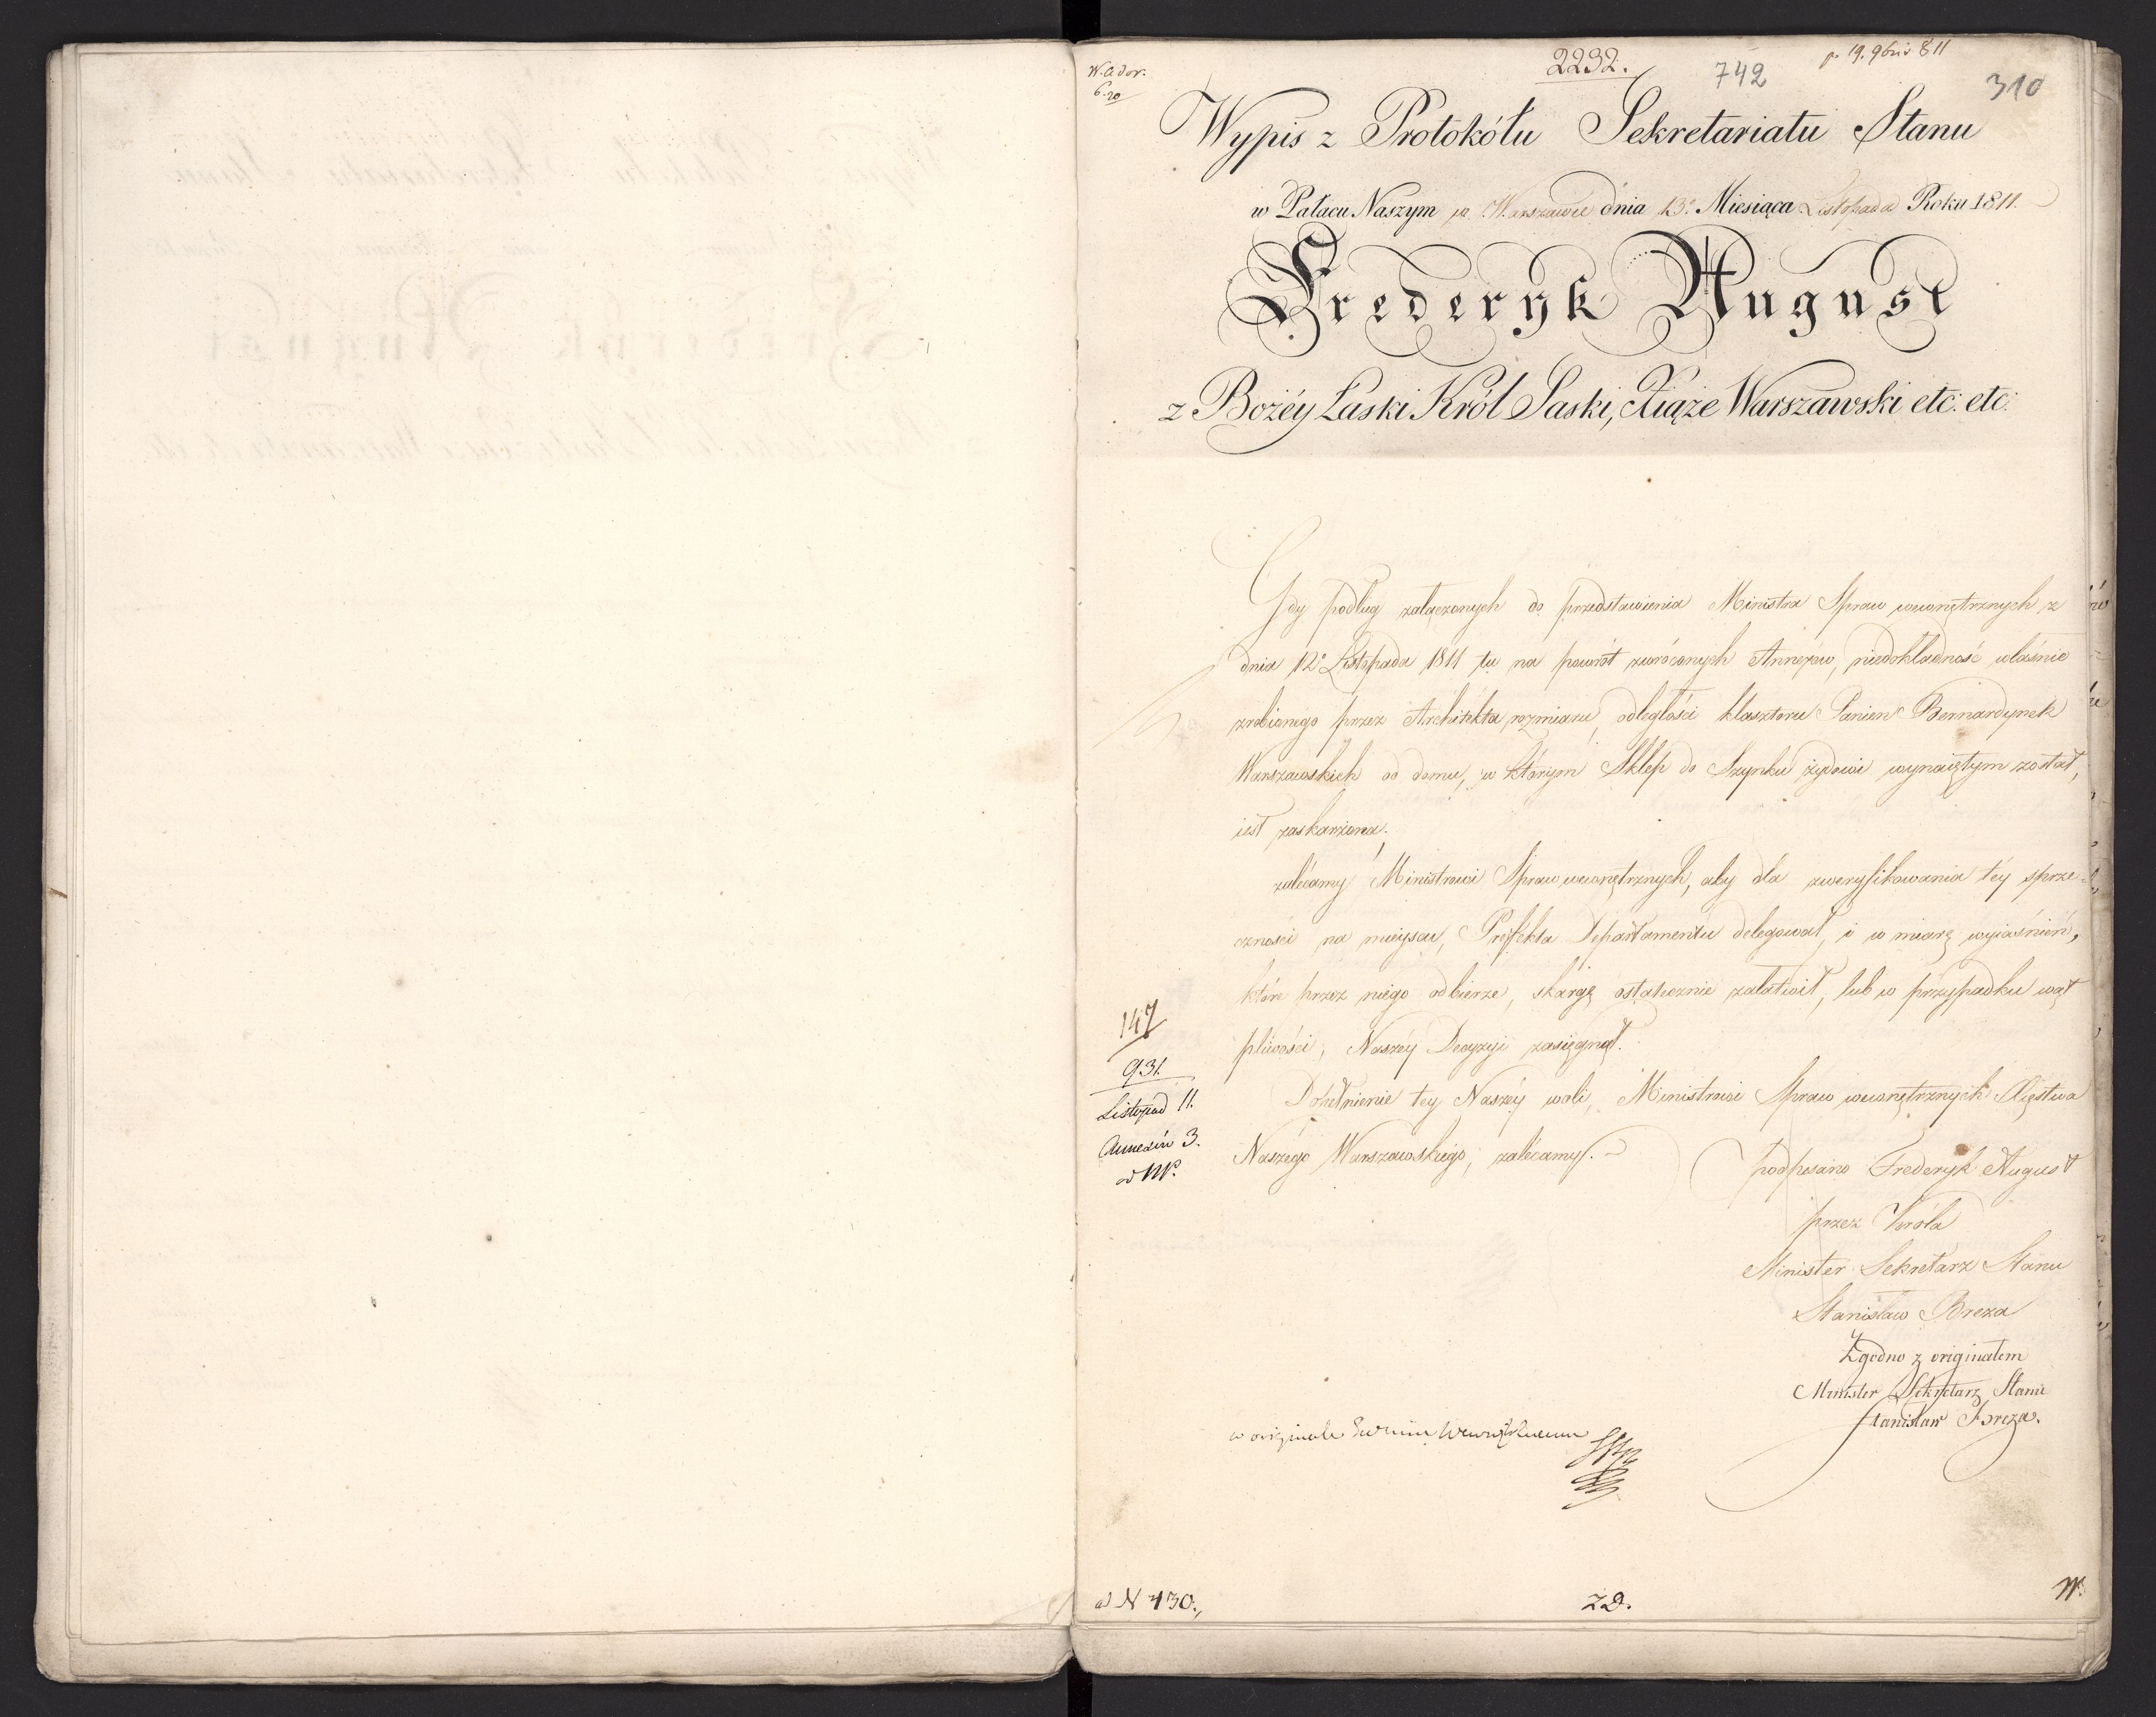 2232.
742
p. 19. 9bris 811
310
W. a dor.
6.20
Wypis z Protokółu Sekretariatu Stanu
w Pałacu Naszym w Warszawie dnia 13º Miesiąca Listopada Roku 1811.
Frederyk August
z Bożéy Łaski Król Saski, Xiąże Warszawski etc: etc:
Gdy podług załączonych do przedstawienia Ministra Spraw wewnętrznych z
dnia 12º Listopada 1811 tu na powrót zwróconych Annexów, niedokładność właśnie
zrobionego przez Architekta rozmiaru, odległości klasztoru Panien Bernardynek
Warszawskich od domu, w którym Sklep do Szynku żydowi wynaiętym został,
iest zaskarżona;
zalécamy Ministrowi Spraw wewnętrznych, aby dla zweryfikowania téy sprze-
czności na mieyscu, Prefekta Departamentu delegował, i w miarę wyiaśnień,
które przez niego odbierze, skargę ostatecznie załatwił, lub w przypadku wąt
pliwości, Naszéy Decyzyi zasięgnął.
Dopełnienie tey Naszéy woli, Ministrowi Spraw wewnętrznych Xięstwa
Naszégo Warszawskiego, zalécamy.
podpisano Frederyk August
przez Króla
Minister Sekretarz Stanu
Stanisław Breza
Zgodno z originałem
Minister Sekretarz Stanu
Stanisław Breza.
147
931.
Listopad 11.
Annexów 3.
w originale
ad N 430.
ZD.